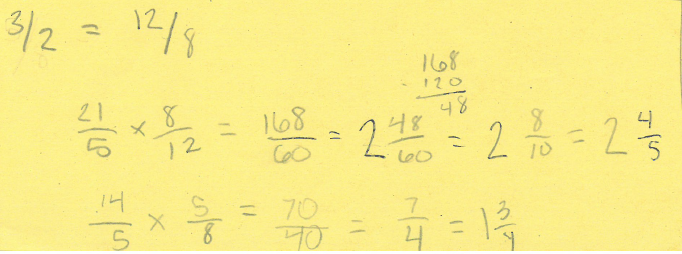 3/2 = 12/8
168
120
48
21/5 × 8/12 = 168/60 = 2 48/60 = 2 8/10 = 2 4/5
14/5 × 5/8 = 70/40 = 7/4 = 1 3/4